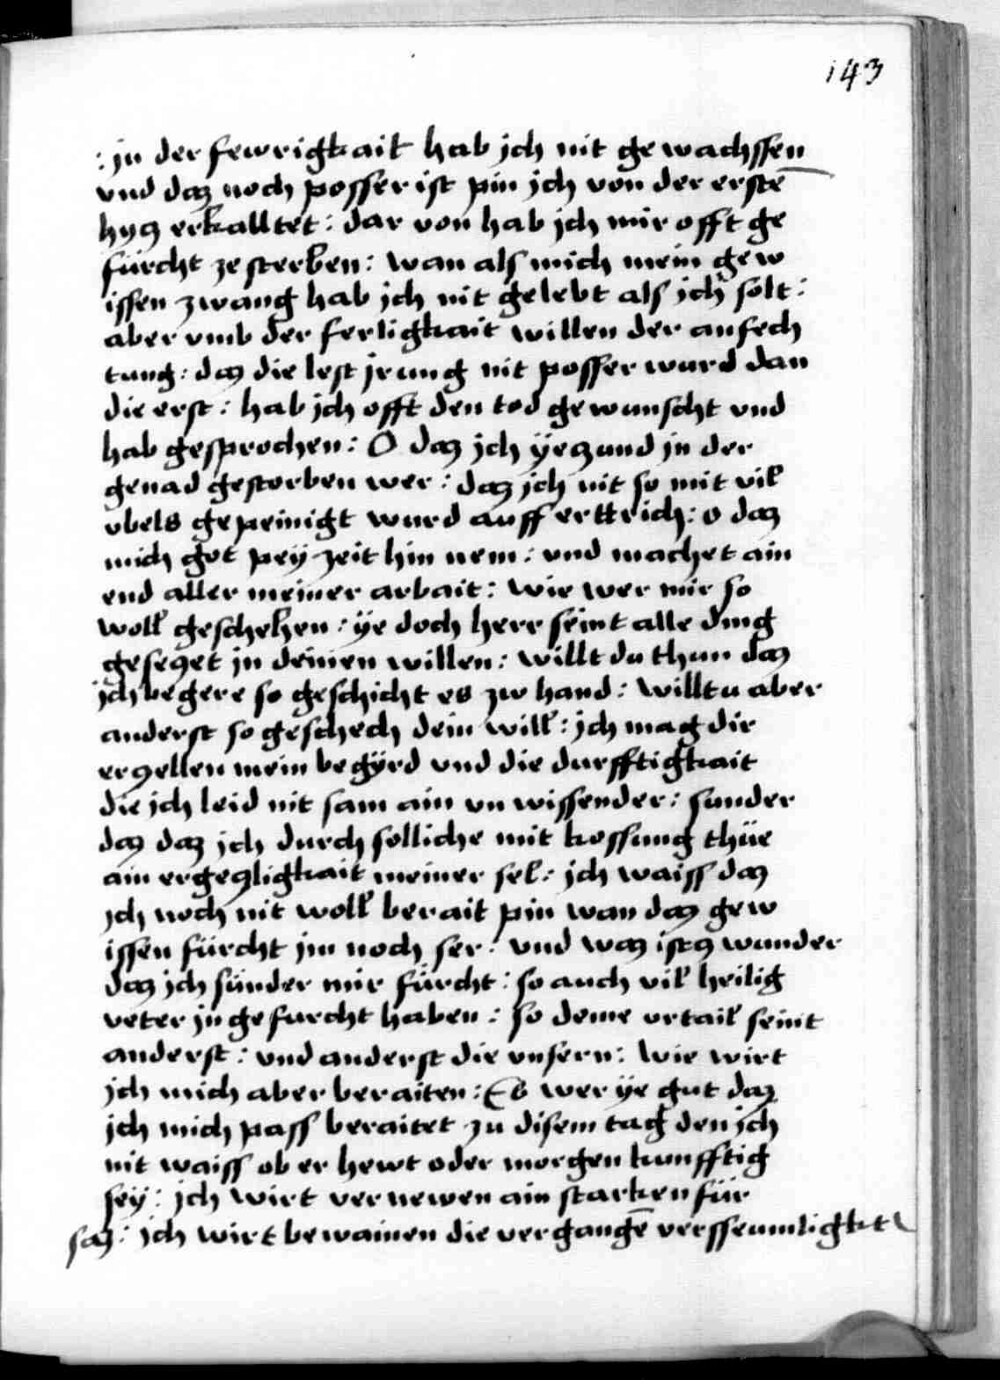 143
: jn der fewrigkait hab jch nit gewachssen
vnd daz noch posser ist pin jch von der erstē
hycz erkalltet : dar von hab jch mir offt ge
fürcht ze sterben : wan als mich mein gew
issen zwang hab jch nit gelebt als jch solt :
aber vmb der ferligkait willen der anfech
tung : daz die lest jrung nit posser wurd dan
die erst : hab jch offt den tod gewunscht vnd
hab gesprochen : O daz jch yeczund jn der
genad gestorben wer : daz jch nit so mit vil
vbels gepeinigt wurd auff erttrich : o daz
mich got pey zeit hin nem : vnd machet ain
end aller meiner arbait : wie wer mir so
woll geschehen : ÿe doch herr seint alle ding
geseczet jn deinen willen : willt du thun daz
jch begere so geschicht es zw hand : willtu aber
anderst so geschech dein will : jch mag dir
erczellen mein begÿrd vnd die durfftigkait
die jch leid nit sam ain vn wissender : sunder
daz daz jch durch solliche mit kossung thüe
ain ergeczligkait meiner sel : jch waiss daz
jch noch nit woll berait pin wan daz gew
issen fürcht jm noch ser : vnd waz istz wunder
daz jch sünder mir fürcht : so auch vil heilig
veter jn gefurcht haben : so deine vrtail seint
anderst : vnd anderst die vnsern : Wie wirt
jch mich aber beraiten : Es wer ÿe gut daz
jch mich pass beraitet zu disem tag den jch
nit waiss ob er hewt oder morgen kunfftig
seÿ : jch wirt vernewen ain starken für
saz : jch wirt bewainen die vergangē verssewmligkt